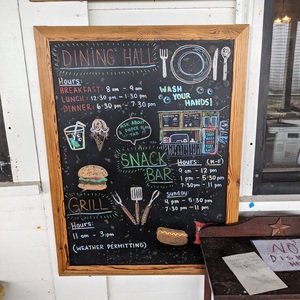 DINING HALL
Hours:
BREAKFAST: 8 am - 9 am
LUNCH: 12:30 pm - 1:30 pm
DINNER: 6:30 pm - 7:30 pm
WASH
YOUR
HANDS!
SNACK
BAR
Hours: (M-F)
9 am - 12 pm
1 pm - 5:30 pm
7:30pm - 11 pm
Sunday:
4 pm - 5:30 pm
7:30 pm - 11 pm
GRILL
Hours:
11 am - 3 pm
(WEATHER PERMITTING)
NO